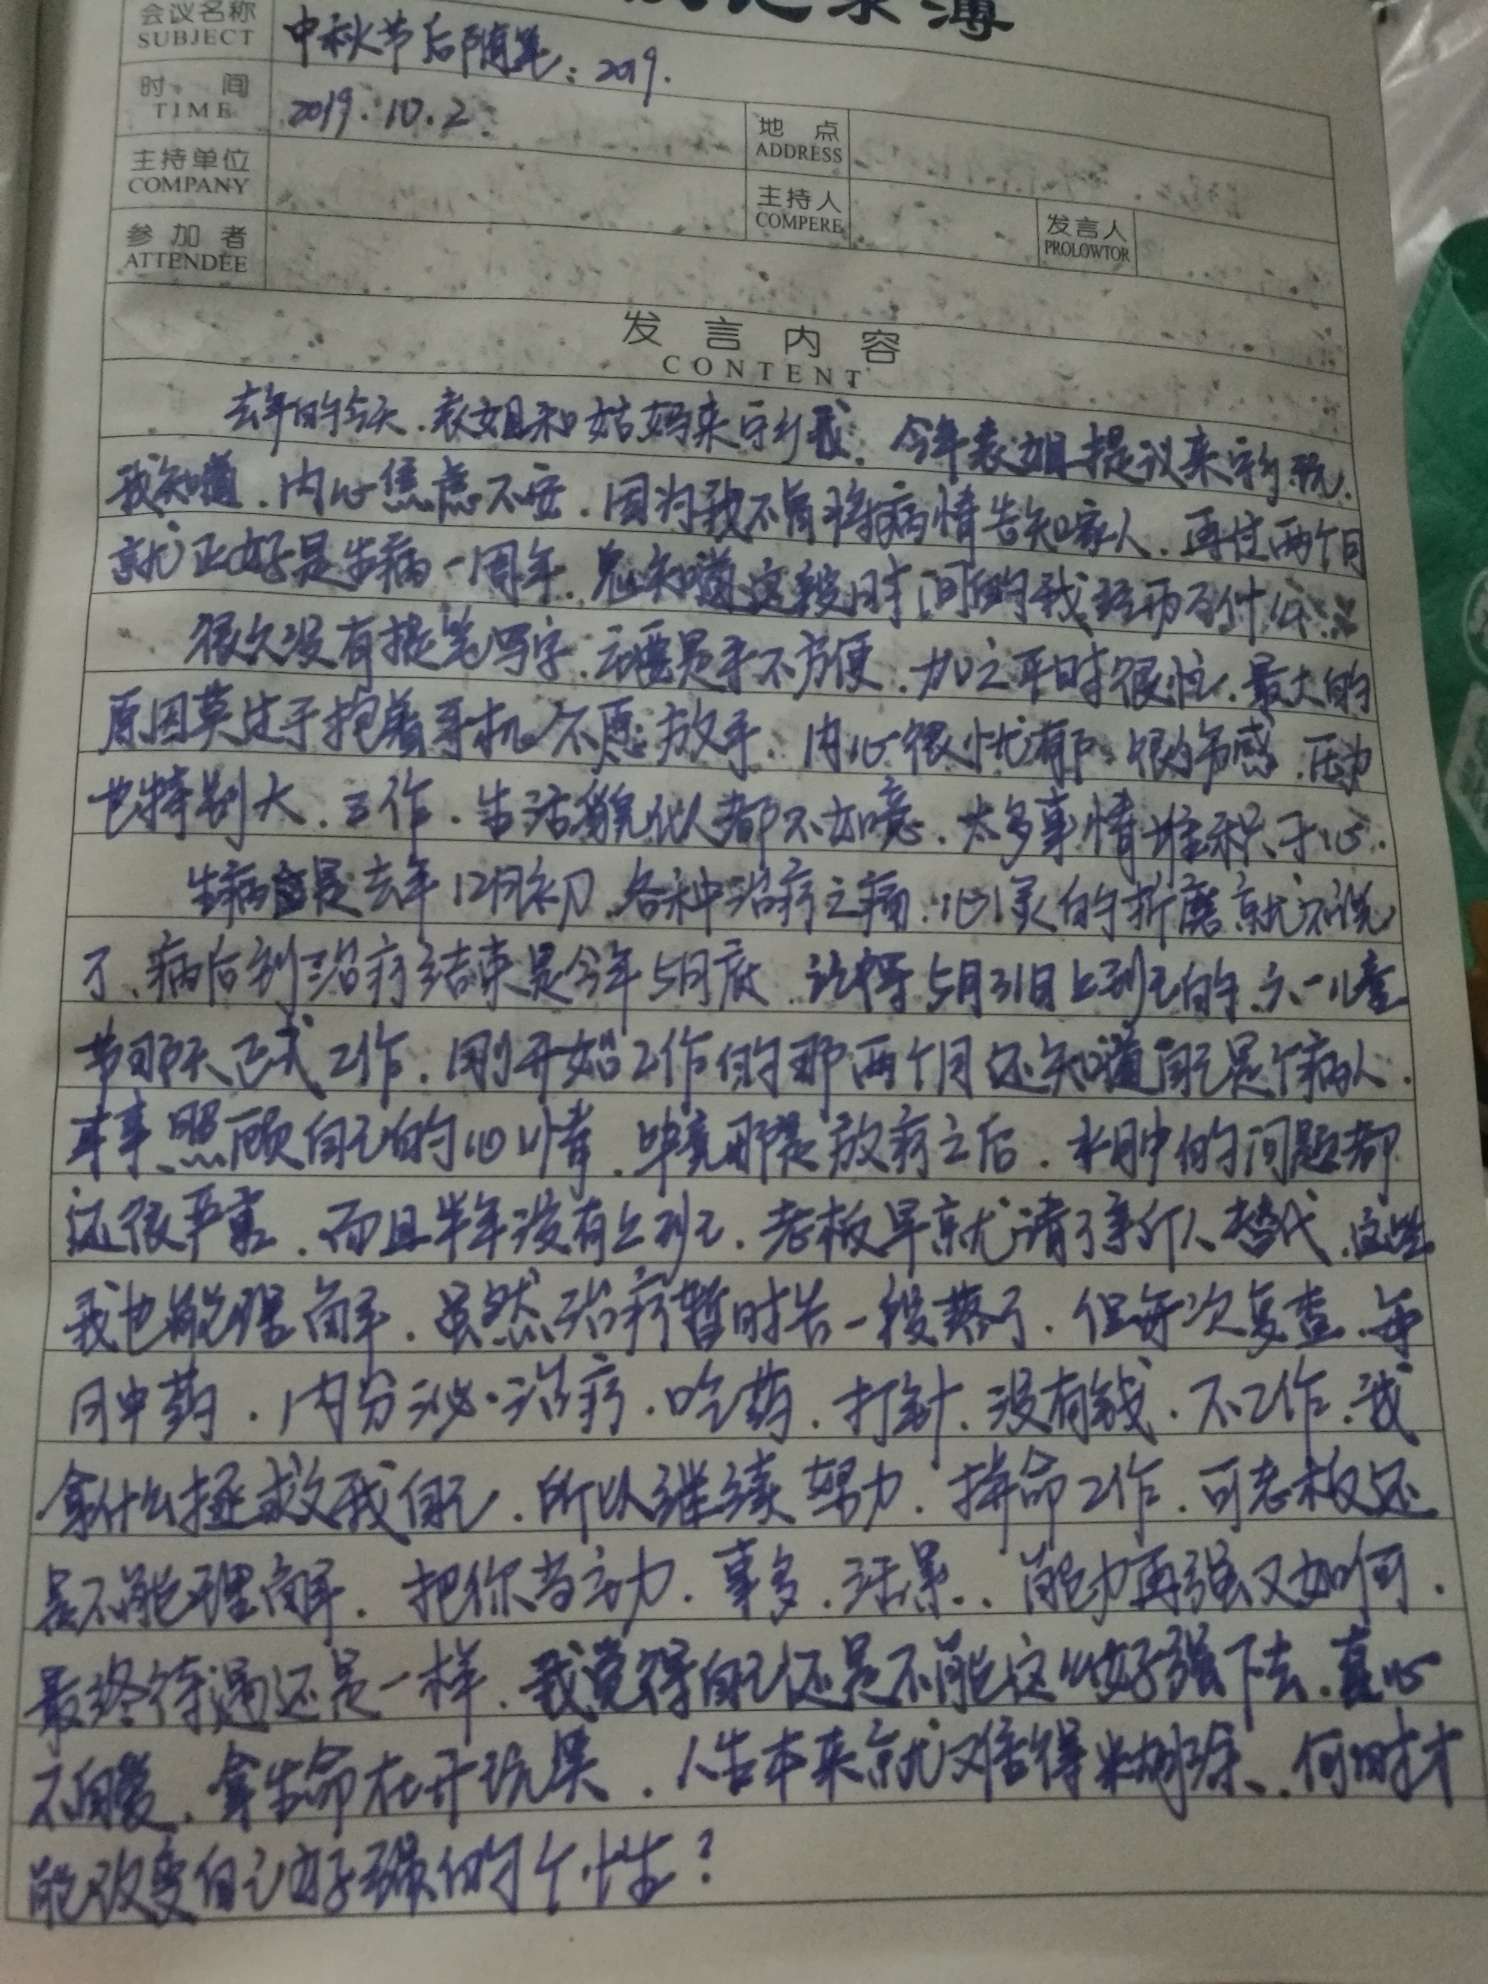 记录簿
会议名称 中秋节后随笔:2019.
SUBJECT
时 间 2019.10.2 地 点
TIME ADDRESS
主持单位 主持人 发言人
COMPANY COMPERE PROLOWTOR
参加者
ATTENDEE
发言内容
CONTENT
去年的今天.表姐和姑妈来宁乡我.今年表姐提议来宁乡玩.
我知道.内心焦虑不安.因为我不肯将病情告知家人.再往两个月
就正好是生病一周年.鬼知道这段时间的我经历了什么...
很久没有提笔写字.主要是手不方便.加之平时很忙.最大的
原因莫过于抱着手机不愿放手.内心很忧郁.很伤感.压力
也特别大.工作.生活貌似都不如意.太多事情堆积于心.
生病应是去年12月初.各种治疗之痛.心灵的折磨就不说
了.病后到治疗结束是今年5月底.记得5月31日上班的.六一儿童
节那天正式工作.刚开始工作的那两个月还知道自己是个病人.
事事照顾自己的心情.毕竟那是放疗之后.水肿的问题都
还很严重.而且半年没有上班.老板早就请了新人替代.这些
我也能理解.虽然治疗暂时告一段落了.但每次复查.每
日中药.内分泌治疗.吃药.打针.没有钱.不工作.我
拿什么拯救我自己.所以继续努力.拼命工作.可老板还
是不能理解.把你当主力.事多.活累..能力再强又如何.
最终待遇还是一样.我觉得自己还是不能这么好强下去.真心
不自爱.拿生命在开玩笑.人生本来就难得.何时才
能改变自己好强的个性?